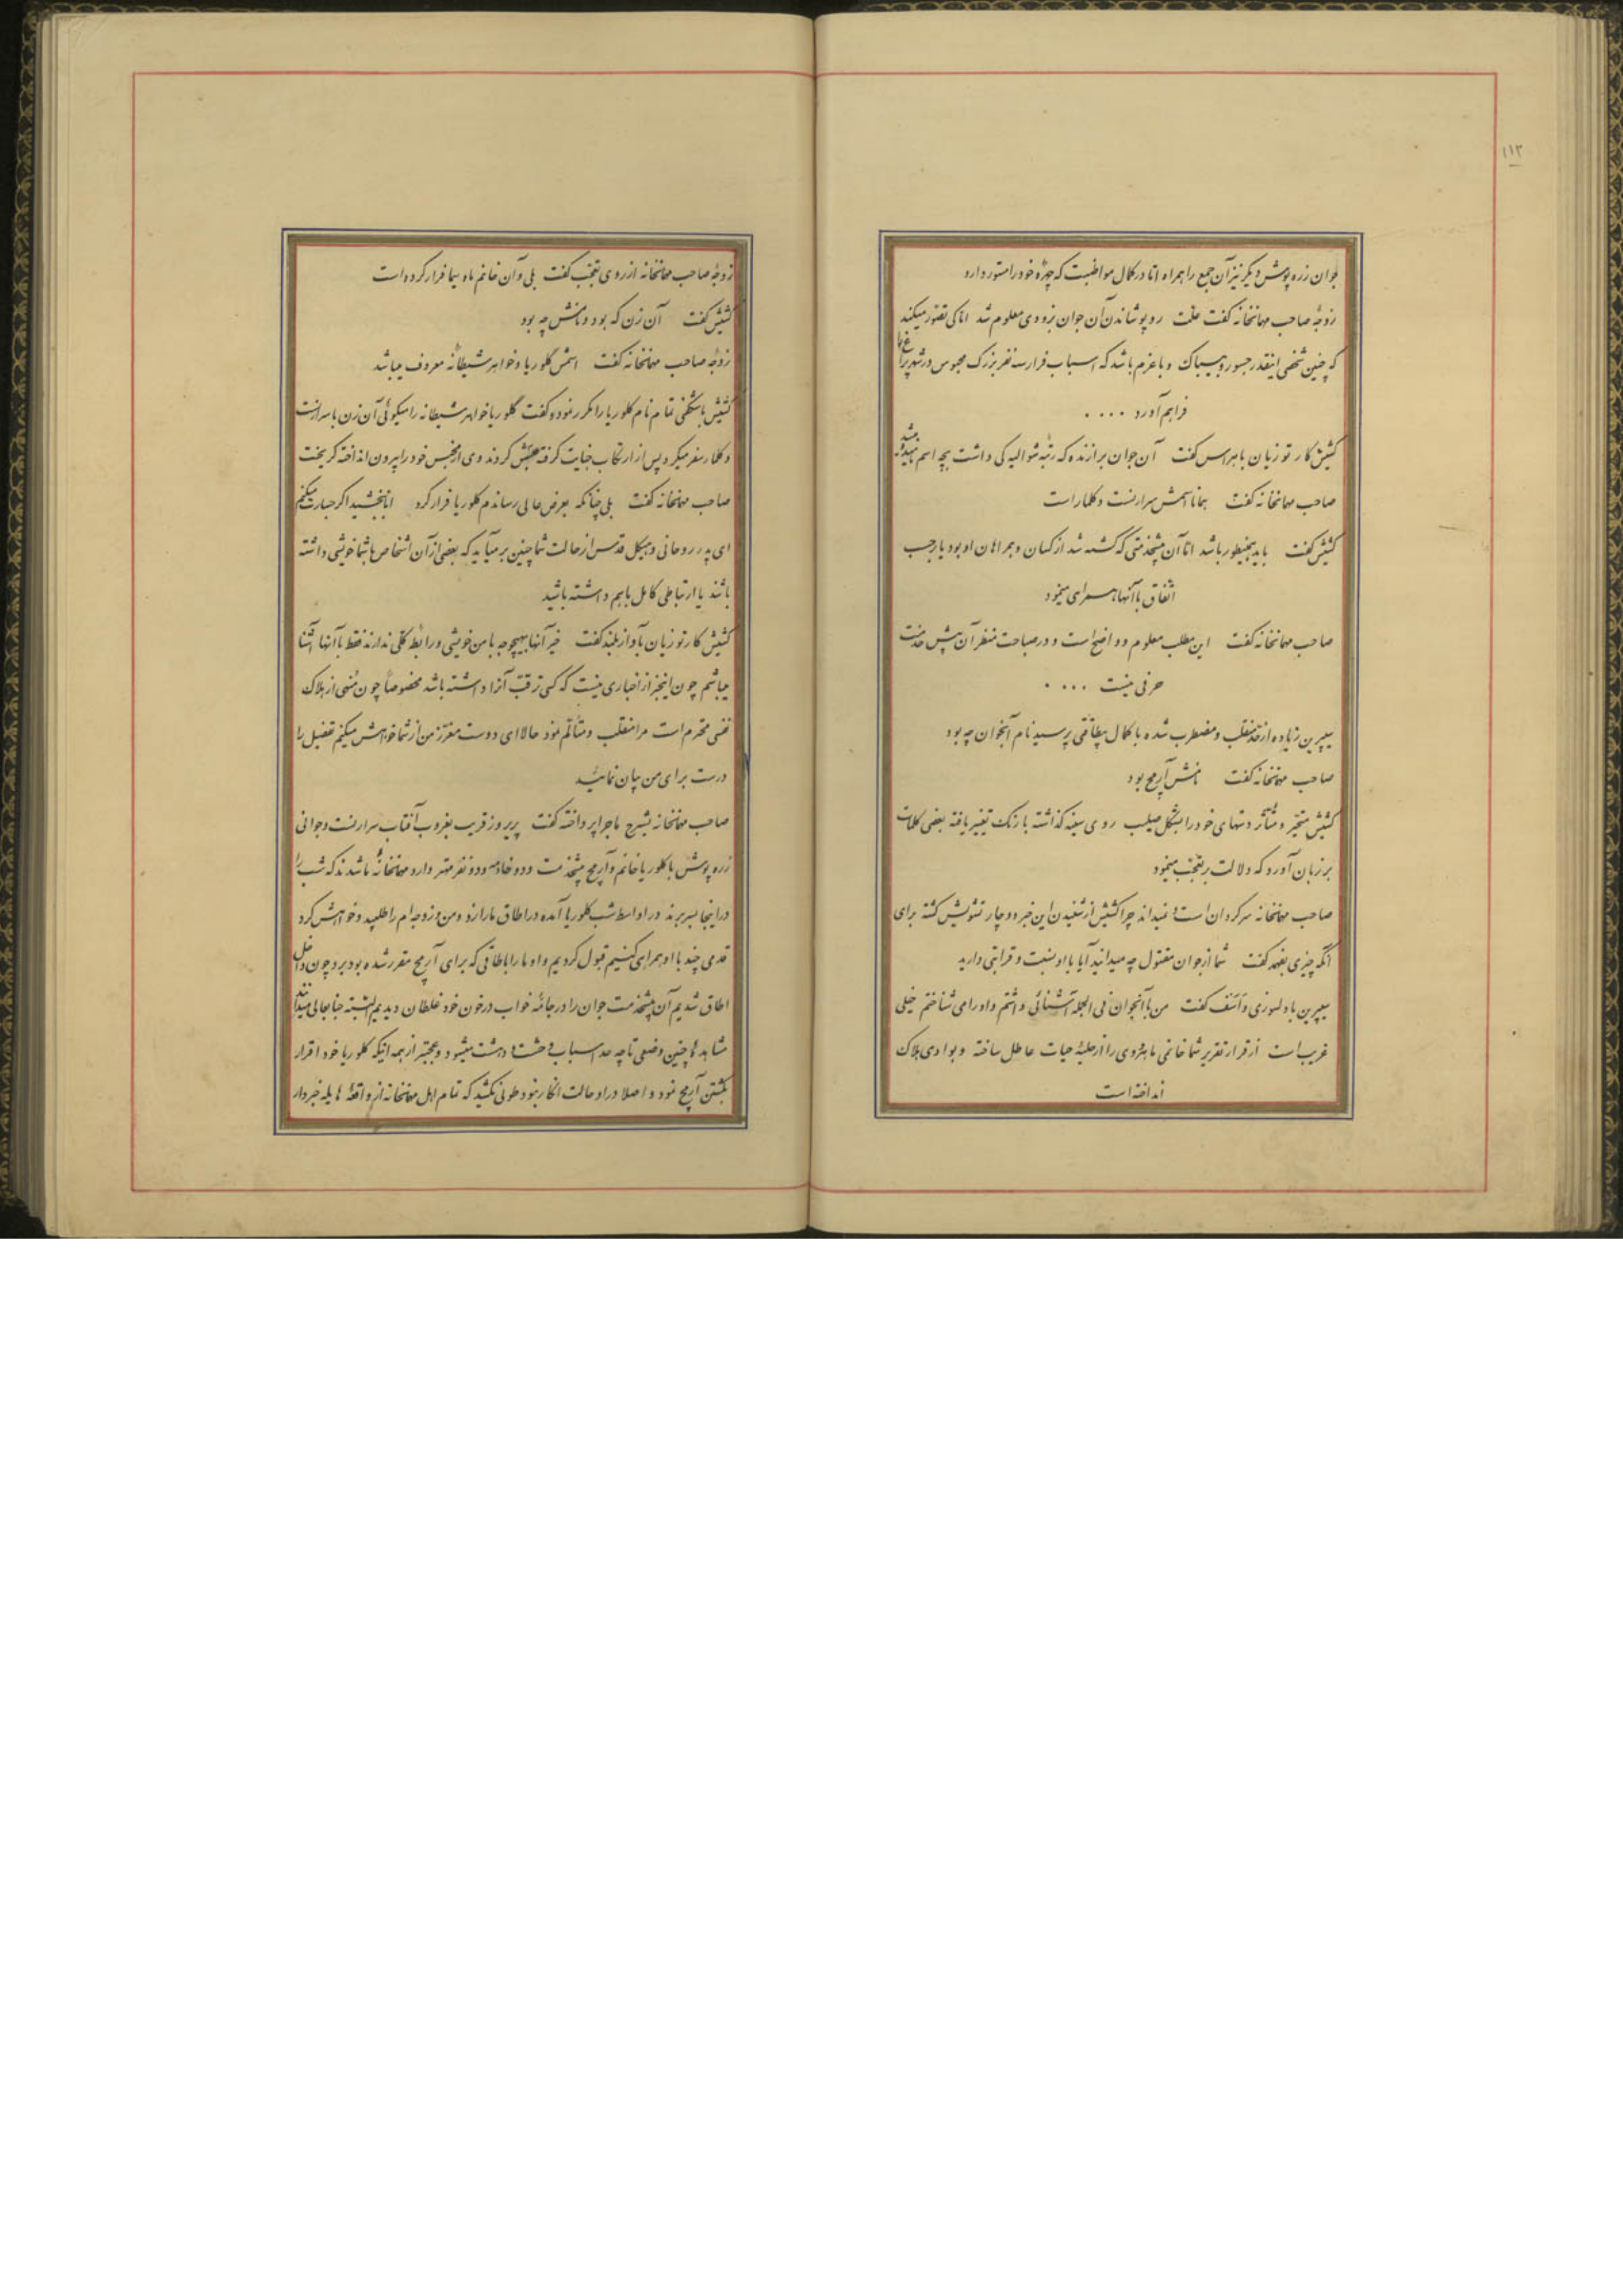 ۱۱۳
جوان زره پوش دیگر نیز آن جمع را همراه اما در کمال مواظبت که چهرهٔ خود را مستور دارد
زوجهٔ صاحب مهمانخانه گفت علت رو پوشاندن آن جوان بزودی معلوم شد اما کی تصور میکند
که چنین شخصی اینقدر جسور و بیباک و با عزم باشد که اسباب فرار سه نفر بزرگ محبوس در شهر پراغ را
فراهم آورد ....
کشیش کارتوزیان با هراس گفت آن جوان برازنده که رتبهٔ شوالیه کی داشت بچه اسم نامیده میشد
صاحب مهمانخانه گفت همانا اسمش سرارنست دکلمار است
کشیش گفت باید همینطور باشد اما آن پیشخدمتی که کشته شد از کسان و همراهان او بود یا برحسب
اتفاق با آنها همراهی مینمود
صاحب مهمانخانه گفت این مطلب معلوم و واضح است و در صباحت منظر آن پیش خدمت
حرفی نیست ....
سیپرین زیاده از حد منقلب و مضطرب شده با کمال بیطاقتی پرسید نام آنجوان چه بود
صاحب مهمانخانه گفت نامش آریمح بود
کشیش متحیر و متأثر دستهای خود را بشکل صلیب روی سینه گذاشته با رنگ تغییر یافته بعضی کلمات
بر زبان آورد که دلالت بر تعجب مینمود
صاحب مهمانخانه سرگردان است نمیداند چرا کشیش از شنیدن این خبر دوچار تشویش گشته برای
آنکه چیزی بفهمد گفت شما از جوان مقتول چه میدانید آیا با او نسبت و قرابتی دارید
سیپرین با دلسوزی و تأسف گفت من با آنجوان فی الجمله آشنائی داشتم و او را می شناختم خیلی
غریب است از قرار تقریر شما خانمی ماهروی را از حلیهٔ حیات عاطل ساخته و بوادی هلاک
انداخته است
زوجهٔ صاحب مهمانخانه از روی تعجب گفت بلی و آن خانم ماه سیما فرار کرده است
کشیش گفت آن زن که بود و نامش چه بود
زوجهٔ صاحب مهمانخانه گفت اسمش گلوریا و خواهر شیطانه معروف میباشد
کشیش با شگفتی تمام نام گلوریا را مکرر نموده گفت گلوریا خواهر شیطانه را میگوئی آن زن با سرارنست
دکلمار سفر میکرد پس از ارتکاب جنایت گرفته حبسش کردند وی از محبس خود را بیرون انداخته گریخت
صاحب مهمانخانه گفت بلی چنانکه بعرض عالی رساندم گلوریا فرار کرد اما ببخشید اگر جسارت میکنم
ای پدر روحانی و هیکل قدس از حالت شما چنین بر میآید که بعضی از آن اشخاص با شما خویشی داشته
باشند یا ارتباطی کامل با هم داشته باشید
کشیش کارتوزیان بآواز بلند گفت خیر آنها بهیچوجه با من خویشی و رابطهٔ کلی ندارند فقط با آنها آشنا
میباشم چون اینخبر از اخباری نیست که کسی ترقب آنرا داشته باشد مخصوصاً چون منبی از هلاک
نفسی محترم است مرا منقلب و متألم نمود حالا ای دوست معزز من از شما خواهش میکنم تفصیل را
درست برای من بیان نمائید
صاحب مهمانخانه بشرح ماجرا پرداخته گفت پریروز قریب بغروب آفتاب سرارنست و جوانی
زره پوش با گلوریا خانم و آریمح پیشخدمت و دو خادمه و دو نفر مهتر وارد مهمانخانهٔ ما شدند که شب را
در اینجا بسر برند در اواسط شب گلوریا آمده در اطاق ما را زد و من و زوجه ام را طلبید و خواهش کرد
قدمی چند با او همراهی کنیم قبول کردیم و او ما را باطاقی که برای آریمح مقرر شده بود برد چون داخل
اطاق شدیم آن پیشخدمت جوان را در جامهٔ خواب در خون خود غلطان دیدیم البته جنابعالی میدانند
مشاهدهٔ چنین وضعی تا چه حد اسباب وحشت و دهشت میشود و عجبتر از همه اینکه گلوریا خود اقرار
بکشتن آریمح نمود و اصلا در او حالت انکار نبود طولی نکشید که تمام اهل مهمانخانه از واقعهٔ هایله خبردار